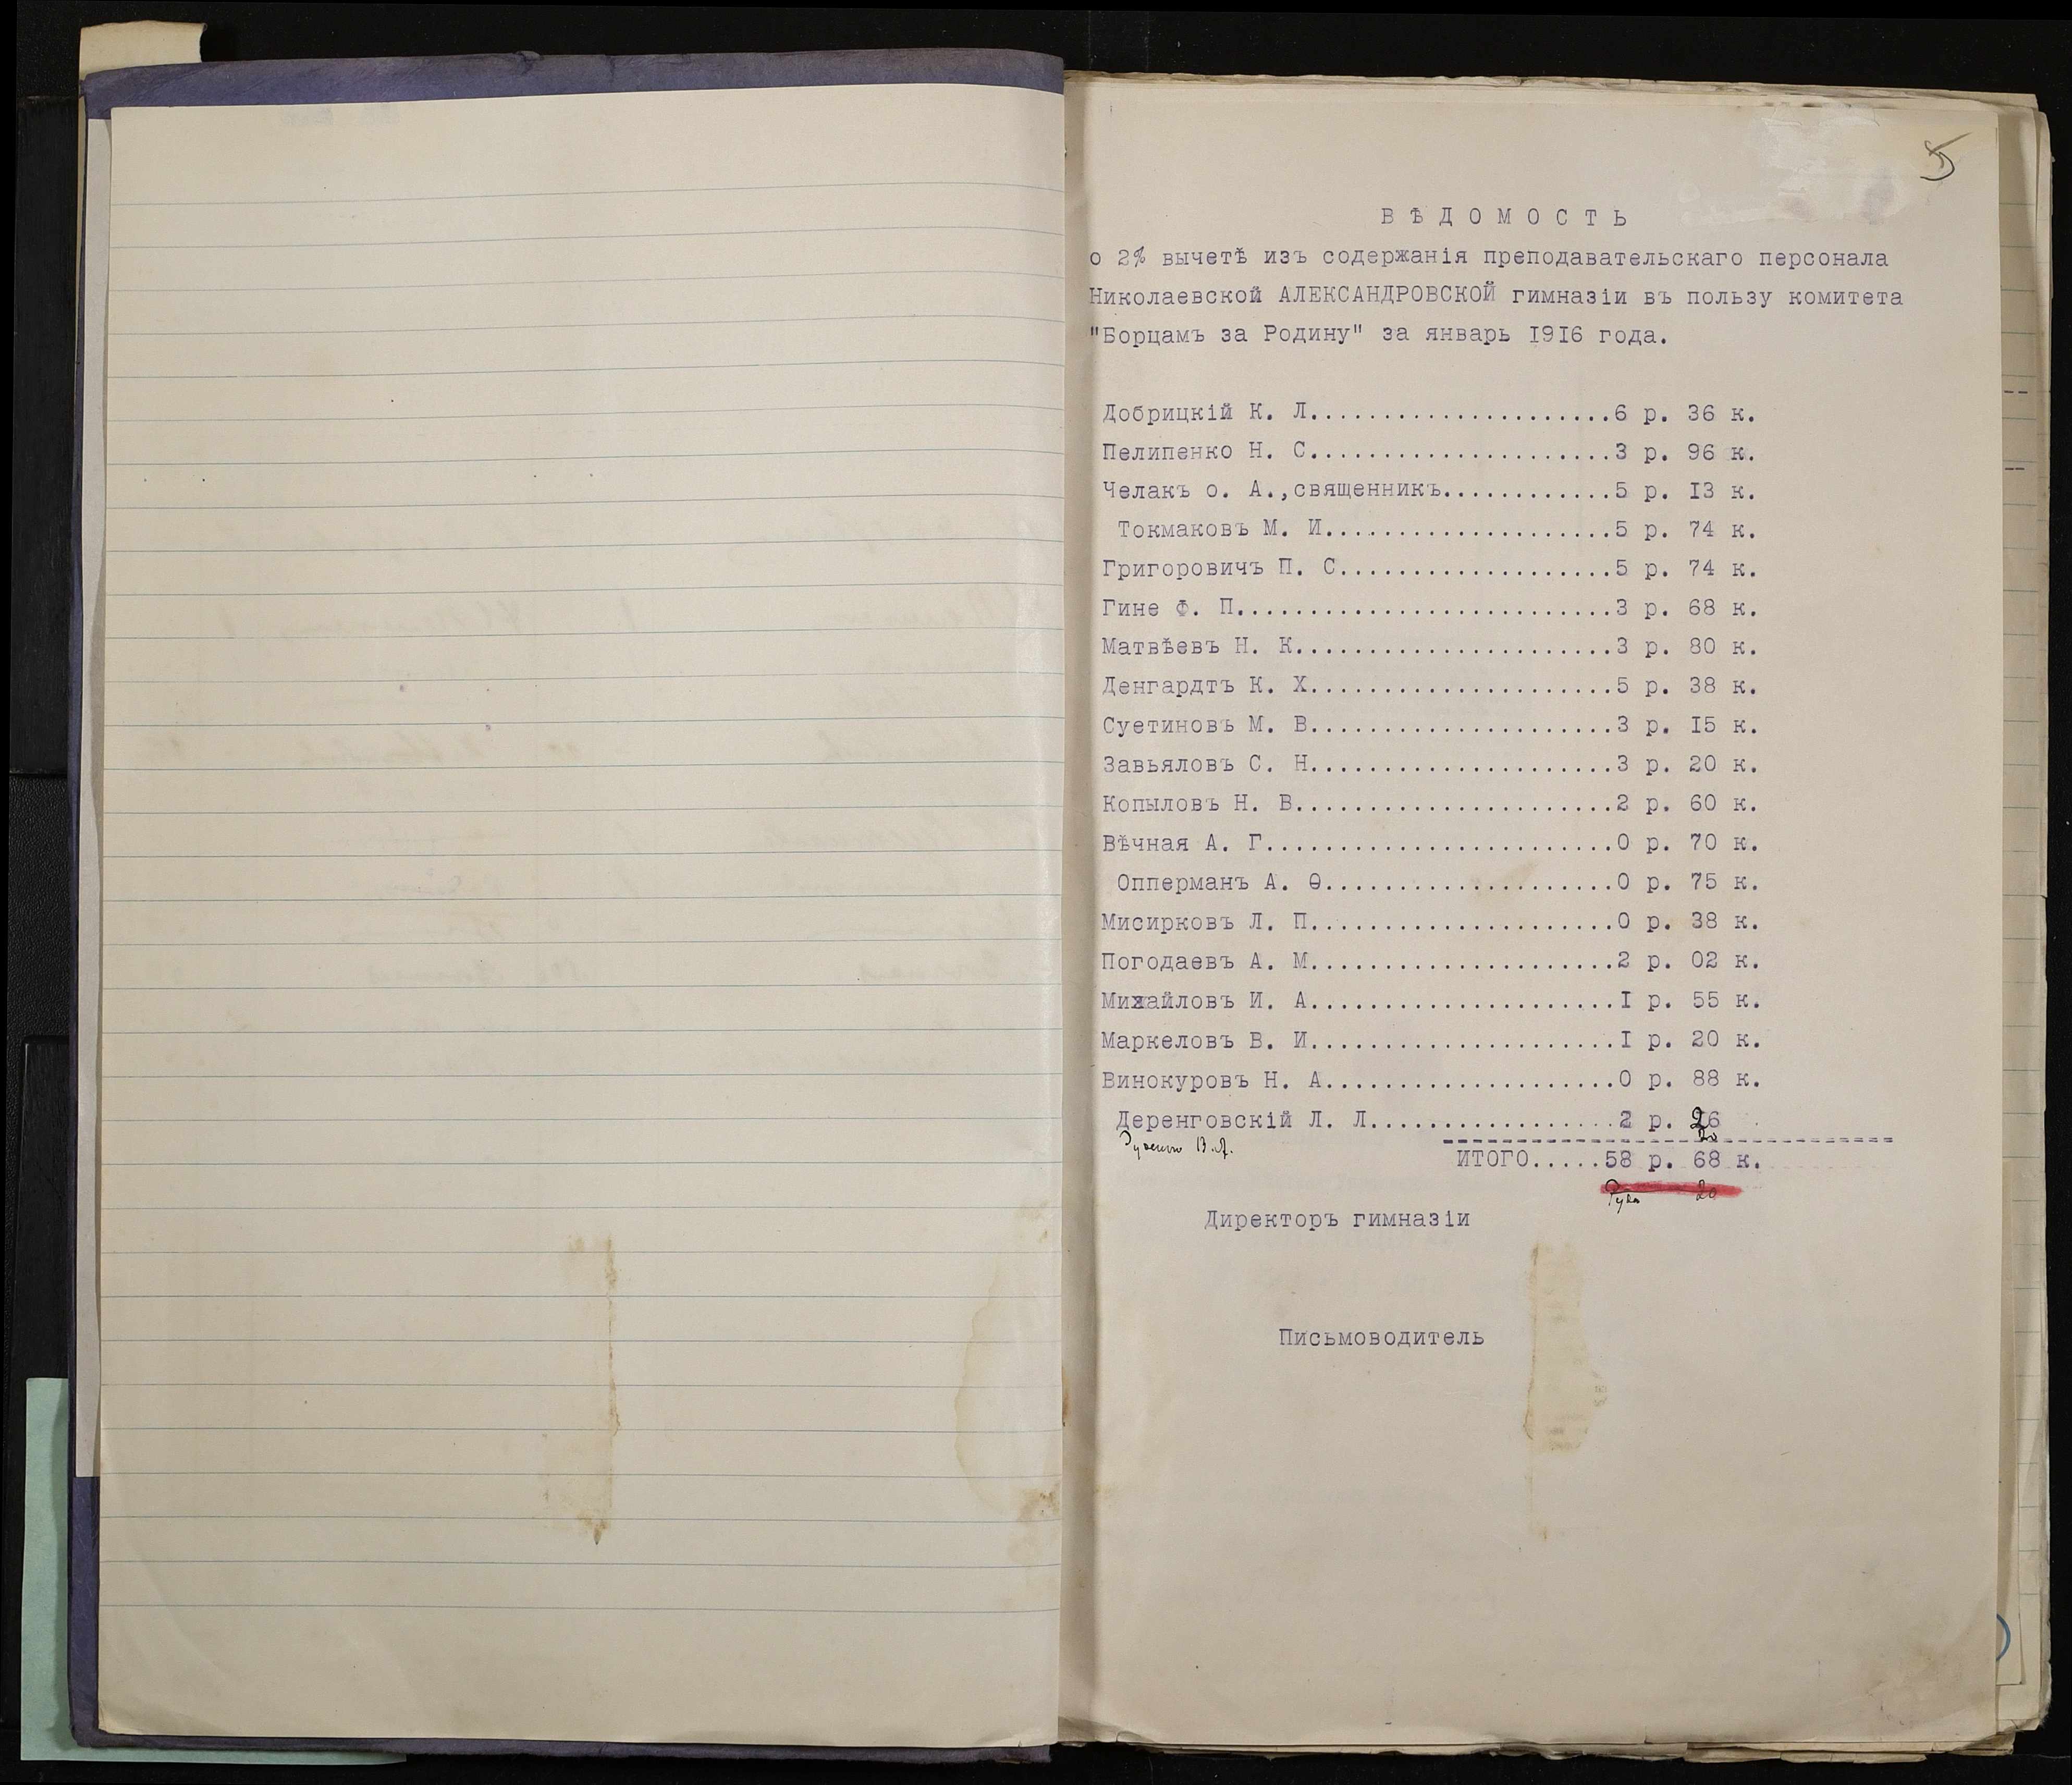 5
ВѢДОМОСТЬ
о 2% вычетѣ изъ содержанія преподавательскаго персонала
Николаевской АЛЕКСАНДРОВСКОЙ гимназіи въ пользу комитета
"Борцамъ за Родину" за январь I9I6 года.
Добрицкій К. Л.....................6 р. 36 к.
Пелипенко Н. С.....................3 р. 96 к.
Челакъ о. А.,священникъ............5 р. I3 к.
Токмаковъ М. И....................5 р. 74 к.
Григоровичъ П. С...................5 р. 74 к.
Гине Ф. П..........................3 р. 68 к.
Матвѣевъ Н. К......................3 р. 80 к.
Денгардтъ К. Х.....................5 р. 38 к.
Суетиновъ М. В.....................3 р. I5 к.
Завьяловъ С. Н.....................3 р. 20 к.
Копыловъ Н. В......................2 р. 60 к.
Вѣчная А. Г........................0 р. 70 к.
Опперманъ А. Ѳ....................0 р. 75 к.
Мисирковъ Л. П.....................0 р. 38 к.
Погодаевъ А. М.....................2 р. 02 к.
Михайловъ И. А.....................I р. 55 к.
Маркеловъ В. И.....................I р. 20 к.
Винокуровъ Н. А....................0 р. 88 к.
Деренговскій Л. Л.................2 р. 26
20
ИТОГО.....58 р. 68 к.
20
Директоръ гимназіи
Письмоводитель